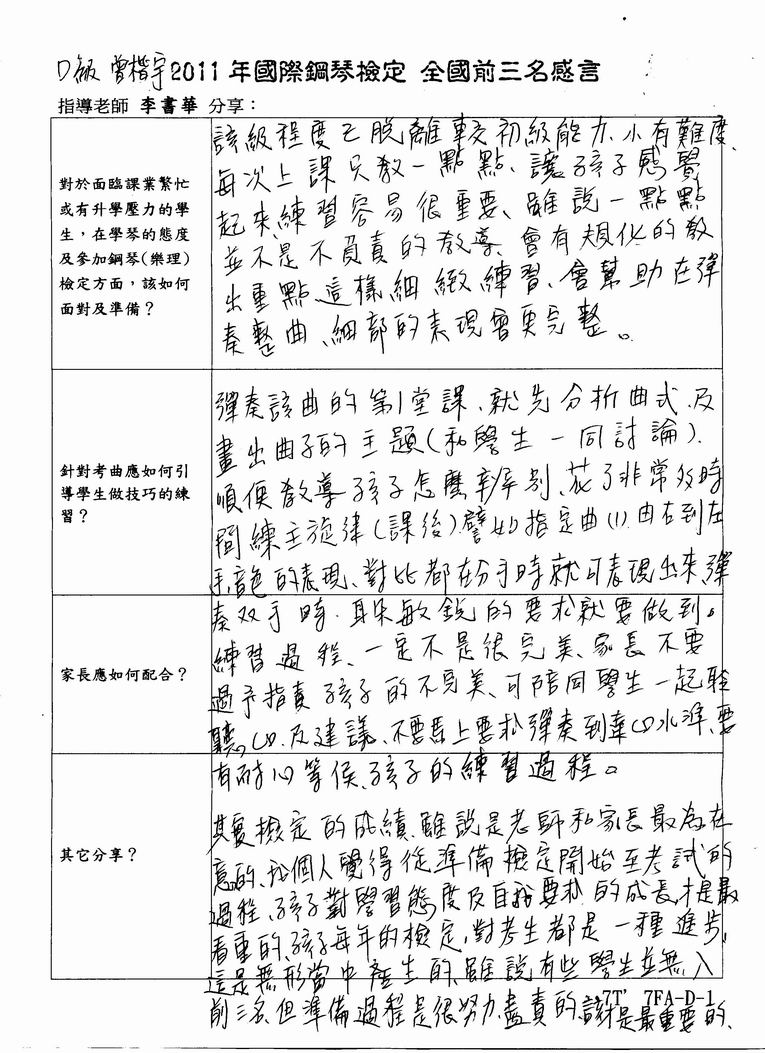 D級 曾楷宇 2011年國際鋼琴檢定 全國前三名感言
指導老師 李書華 分享：
對於面臨課業繁忙
或有升學壓力的學
生，在學琴的態度
及參加鋼琴(樂理)
檢定方面，該如何
面對及準備？
該級程度已脫離較初級能力、小有難度、
每次上課只教一點點、讓孩子感覺
起來練習容易很重要、雖說一點點
並不是不負責的教導、會有規化的教
出重點這樣細緻練習、會幫助在彈
奏整曲、細部的表現會更完整。
針對考曲應如何引
導學生做技巧的練
習？
彈奏該曲的第1堂課、就先分析曲式、及
畫出曲子的主題(和學生一同討論)、
順便教導孩子怎麼辨別、花了非常多時
間練主旋律(課後)、譬如指定曲(1)、由右到左
手、音色的表現、對比都在分手時就可表現出來、彈
奏双手時、耳朵敏銳的要求就要做到。
家長應如何配合？
練習過程、一定不是很完美、家長不要
過于指責孩子的不完美、可陪同學生一起聆
聽CD、及建議、不要馬上要求彈奏到達CD水準、要
有耐心等侯、孩子的練習過程。
其它分享？
其實檢定的成績、雖說是老師和家長最為在
意的、我個人覺得從準備檢定開始至考試的
過程、孩子對學習態度及自我要求的成長、才是最
看重的、孩子每年的檢定、對考生都是一種進步、
這是無形當中產生的、雖說有些學生並無入
前三名、但準備過程是很努力、盡責的、該才是最重要的、
7T' 7FA-D-1